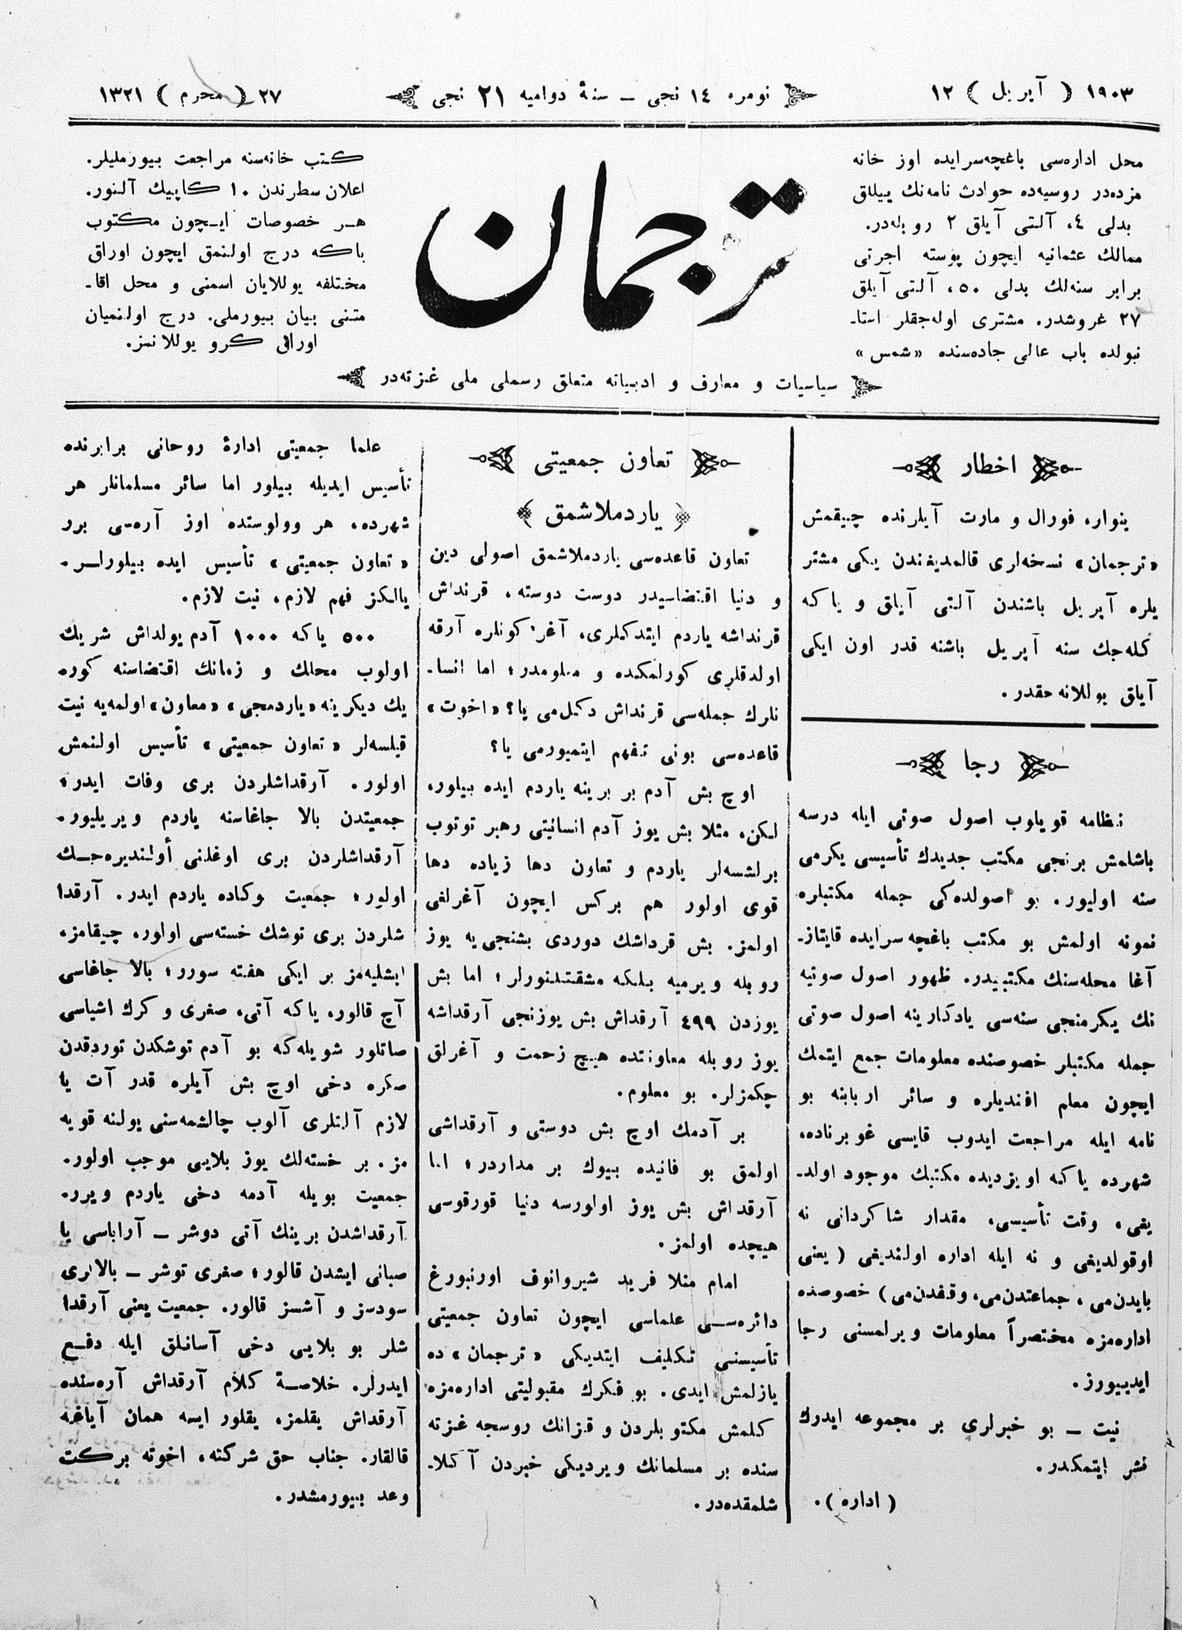 ١٩٠٣ ( آپريل ) ١٢
نومره ١٤ نجى ـ سنۀ دواميه ٢١ نجى
٢٧ ( محرم ) ١٣٢١
محل اداره‌سى باغچه‌سرايده اوز خانه
مزده‌در روسيه‌ده حوادث نامه‌نك ييللق
بدلى ٤، آلتى آيلق ٢ روبله‌در.
ممالك عثمانيه ايچون پوسته اجرتى
برابر سنه‌لك بدلى ٥٠، آلتى آيلق
٢٧ غروشدر. مشترى اوله‌جقلر استا-
نبولده باب عالى جاده‌سنده «شمس»
ترجمان
كتب خانه‌سنه مراجعت بيورمليلر.
اعلان سطرندن ١٠ كاپيك آلنور.
هر خصوصات ايچون مكتوب
ياكه درج اولنمق ايچون اوراق
مختلفه يوللايان اسمنى و محل اقا-
متنى بيان بيورملى. درج اولنميان
اوراق كرو يوللانمز.
سياسيات و معارف و ادبياته متعلق رسملى ملى غزته‌در
اخطار
ينوار، فورال و مارت آيلرنده چيقمش
«ترجمان» نسخه‌لرى قالمديغندن يكى مشتر
يلره آپريل باشندن آلتى آيلق و ياكه
كله‌جك سنه آپريل باشنه قدر اون ايكى
آيلق يوللانه‌جقدر.
رجا
نظامه قويلوب اصول صوتى ايله درسه
باشلمش برنجى مكتب جديدك تأسيسى يكرمى
سنه اوليور. بو اصولده‌كى جمله مكتبلره
نمونه اولمش بو مكتب باغچه‌سرايده قايتاز-
آغا محله‌سنك مكتبيدر. ظهور اصول صوتيه
نك يكرمنجى سنه‌سى يادكارينه اصول صوتى
جمله مكتبلر خصوصنده معلومات جمع ايتمك
ايچون معلم افنديلره و سائر اربابنه بو
نامه ايله مراجعت ايدوب قايسى غوبرناده،
شهرده ياكه اويزديده مكتبك موجود اولد-
يغى، وقت تأسيسى، مقدار شاكردانى نه
اوقولديغى و نه ايله اداره اولنديغى ( يعنى
بايدن‌مى، جماعتدن‌مى، وقفدن‌مى ) خصوصده
اداره‌مزه مختصراً معلومات ويرلمسنى رجا
ايدييورز.
نيت ـ بو خبرلرى بر مجموعه ايدرك
نشر ايتمكدر.
( اداره ).
تعاون جمعيتى
ياردملاشمق
تعاون قاعده‌سى ياردملاشمق اصولى دين
و دنيا اقتضاسيدر دوست دوسته، قرنداش
قرنداشه ياردم ايتدكلرى، آغر كونلره آرقه
اولدقلرى كورلمكده و معلومدر؛ اما انسا-
نلرك جمله‌سى قرنداش دكل‌مى يا؟ «اخوت»
قاعده‌سى بونى تفهم ايتميورمى يا؟
اوچ بش آدم بر برينه ياردم ايده بيلور،
لكن، مثلا بش يوز آدم انسانيتى رهبر توتوب
برلشسه‌لر ياردم و تعاون دها زياده دها
قوى اولور هم بركس ايچون آغرلغى
اولمز. بش قرداشك دوردى بشنجى‌يه يوز
روبله ويرميه بلكه مشقتلنورلر؛ اما بش
يوزدن ٤٩٩ آرقداش بش يوزنجى آرقداشه
يوز روبله معاونتده هيچ زحمت و آغرلق
چكمزلر. بو معلوم.
بر آدمك اوچ بش دوستى و آرقداشى
اولمق بو فانيده بيوك بر مداردر؛ اما
آرقداش بش يوز اولورسه دنيا قورقوسى
هيچده اولمز.
امام منلا فريد شيروانوف اورنبورغ
دائره‌سى علماسى ايچون تعاون جمعيتى
تأسيسنى تكليف ايتديكى «ترجمان» ده
يازلمش ايدى. بو فكرك مقبوليتى اداره‌مزه
كلمش مكتوبلردن و قزانك روسجه غزته
سنده بر مسلمانك ويرديكى خبردن آكلا-
شلمقده‌در.
علما جمعيتى ادارۀ روحانى برابرنده
تأسيس ايديله بيلور اما سائر مسلمانلر هر
شهرده، هر وولوستده اوز آره‌سى برر
«تعاون جمعيتى» تأسيس ايده بيلورلر.
يالكز فهم لازم، نيت لازم.
٥٠٠ ياكه ١٠٠٠ آدم يولداش شريك
اولوب محلك و زمانك اقتضاسنه كوره
يك ديكرينه «ياردمجى» «معاون» اولمه‌يه نيت
قيلسه‌لر «تعاون جمعيتى» تأسيس اولنمش
اولور. آرقداشلردن برى وفات ايدر؛
جمعيتدن بالا جاغاسنه ياردم ويريليور.
آرقداشلردن برى اوغلنى أولنديره‌جك
اولور؛ جمعيت بوكاده ياردم ايدر. آرقدا
شلردن برى توشك خسته‌سى اولور، چيقامز،
ايشليه‌مز بر ايكى هفته سورر؛ بالا جاغاسى
آچ قالور، ياكه آتى، صغرى و كرك اشياسى
صاتلور شويله‌كه بو آدم توشكدن توردقدن
صكره دخى اوچ بش آيلره قدر آت يا
لازم آلتلرى آلوب چالشمه‌سنى يولنه قويه
مز. بر خسته‌لك يوز بلايى موجب اولور.
جمعيت بويله آدمه دخى ياردم ويرر.
آرقداشدن برينك آتى دوشر ـ آراباسى يا
صبانى ايشدن قالور؛ صغرى توشر ـ بالالرى
سودسز و آشسز قالور. جمعيت يعنى آرقدا
شلر بو بلايى دخى آسانلق ايله دفع
ايدرلر. خلاصۀ كلام آرقداش آره‌سنده
آرقداش يقلمز، يقلور ايسه همان آياغه
قالقار. جناب حق شركته، اخوته بركت
وعد بيورمشدر.